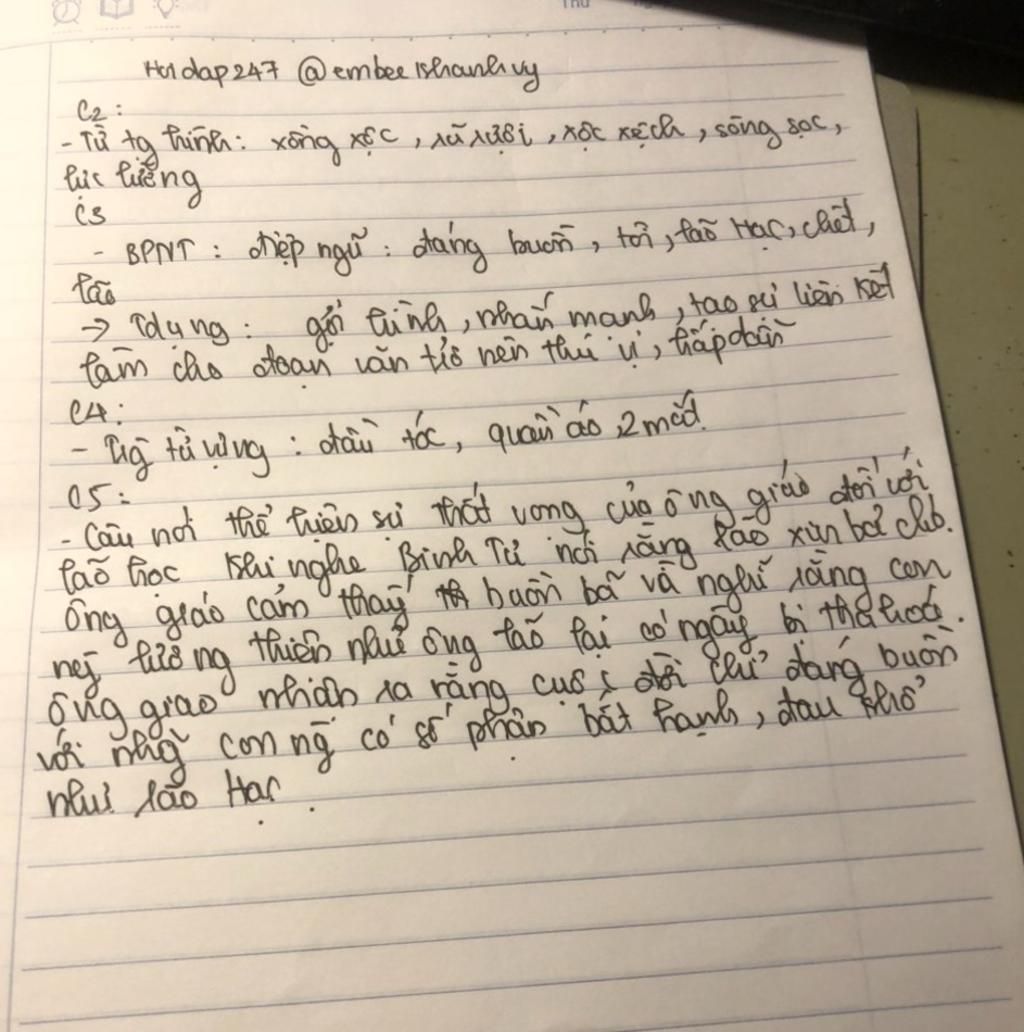 Thu
Hoi dap 247 @embee khanh vy
C2:
- Từ tg hình: xồng xộc, rũ rượi, xộc xệch, sòng sọc,
lực lưỡng
C3
- BPNT: điệp ngữ: đáng buồn, tôi, lão Hạc, chết,
lão
→ Tdụng: gợi hình, nhấn mạnh, tạo sự liên kết
làm cho đoạn văn trở nên thú vị, hấp dẫn
C4:
- Trg từ vựng: đầu tóc, quần áo, 2 mắt.
C5:
- Câu nói thể hiện sự thất vọng của ông giáo đối với
lão học khi nghe Binh Tư nói rằng lão xin bả chó.
ông giáo cảm thấy buồn bã và nghĩ rằng con
lương thiện như ông lão lại có ngày bị tha hoá.
ông giao nhận ra rằng cuộc đời chỉ đáng buồn
với nhg con ng có số phận bất hạnh, đau khổ
như lão Hạc.